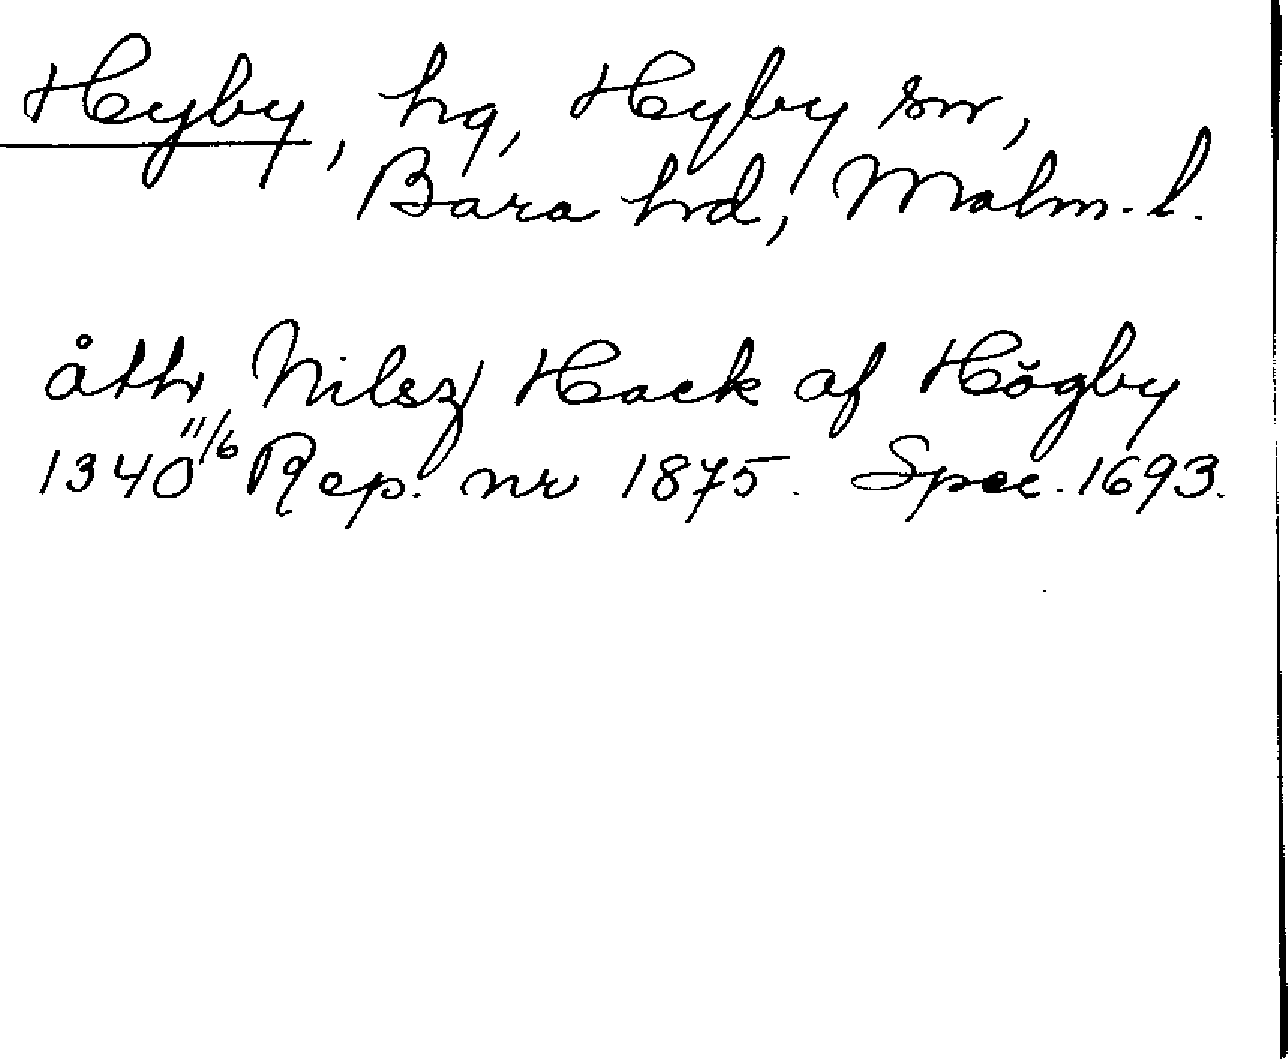 Hyby, hg, Hyby sn,
Bara hrd, Malm. l.
åthr Nilsz Hack af Högby
1340 11/6 Rep. nr 1875. Spec. 1693.